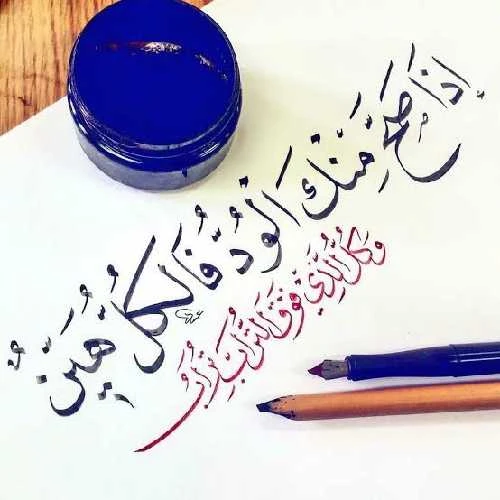 إِذَا صَحَّ مِنْكَ الْوُدُّ فَالكُلُّ هَيِّنٌ
وَكُلُّ الَّذِي فَوْقَ التُّرَابِ تُرَابُ